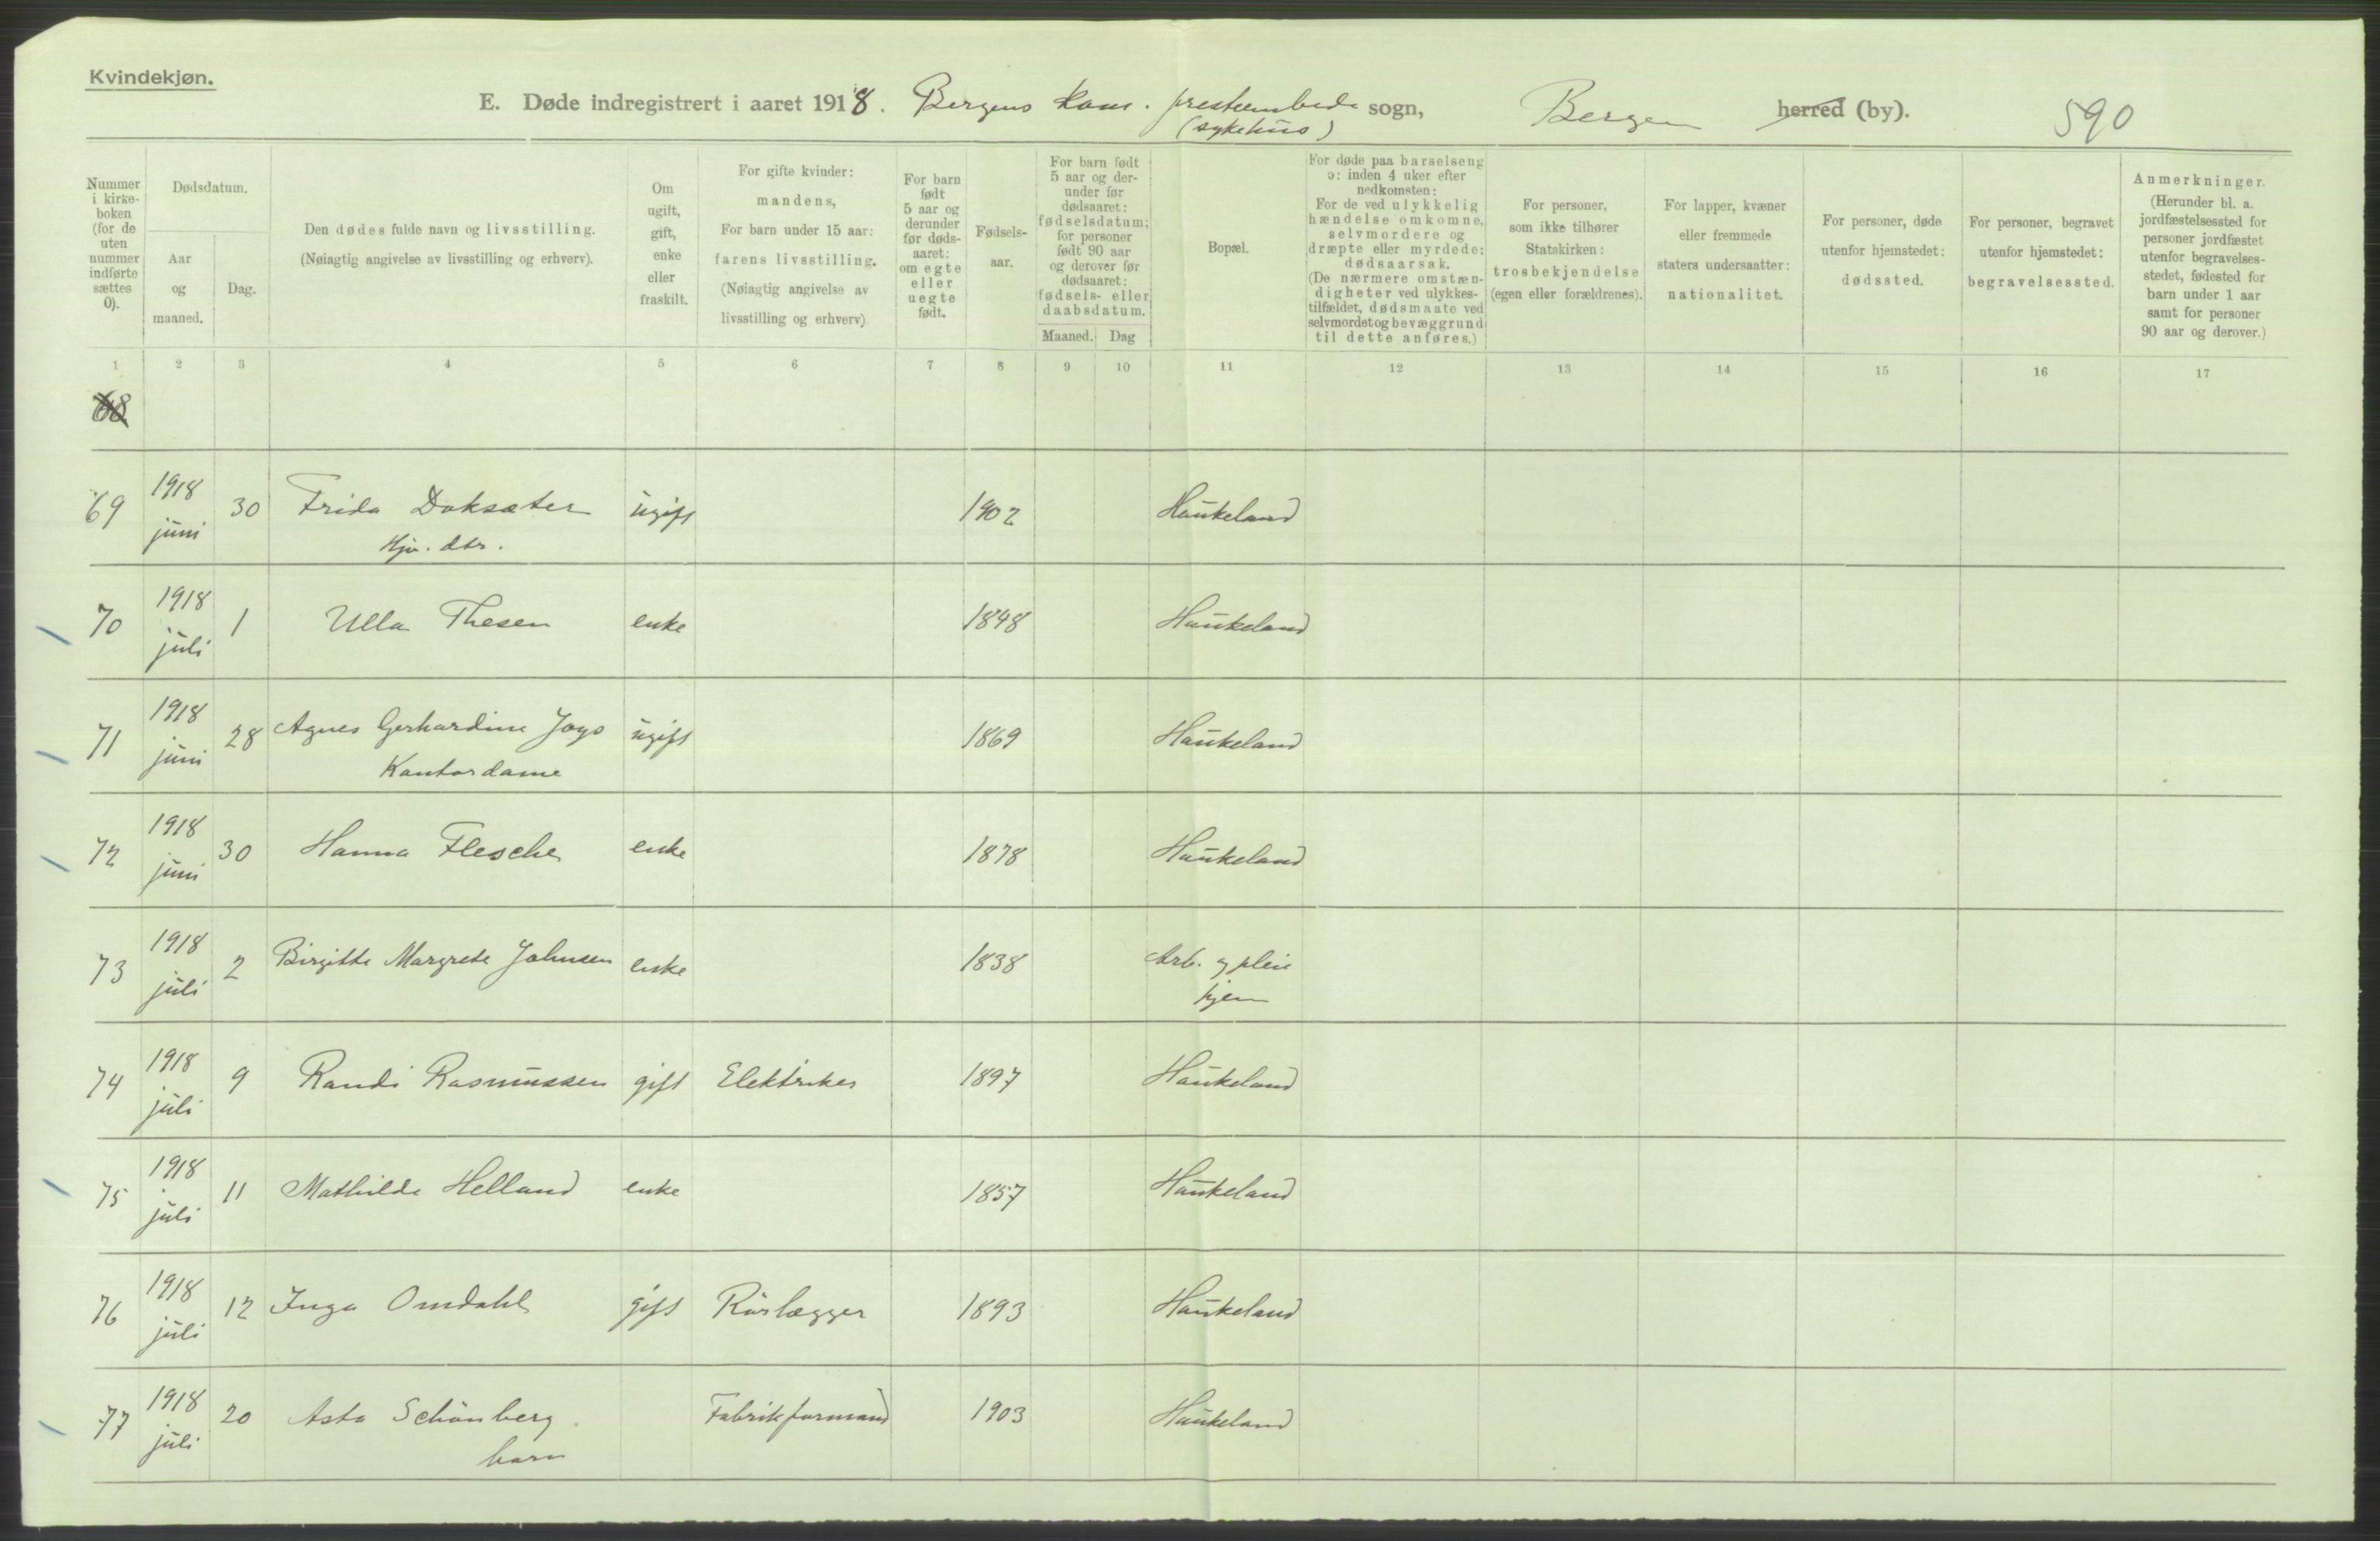 Kvindekjøn.
E. Døde indregistrert i aaret 1918. Bergens kom. presteembede sogn, Bergen herred (by). 590
(sykehus)
Nummer
i kirke-
boken
(for de
uten
nummer
indførte
sættes
0).
Dødsdatum.
Aar
og
maaned.
Dag.
Den dødes fulde navn og livsstilling.
(Nøiagtig angivelse av livsstilling og erhverv).
Om
ugift,
gift,
enke
eller
fraskilt.
For gifte kvinder:
mandens,
For barn under 15 aar:
farens livsstilling.
(Nøiagtig angivelse av
livsstilling og erhverv)
For barn
født
5 aar og
derunder
før døds-
aaret:
om egte
eller
uegte
født.
Fødsels-
aar.
For barn født
5 aar og der-
under før
dødsaaret:
fødselsdatum;
for personer
født 90 aar
og derover før
dødsaaret:
fødsels- eller
daabsdatum.
Maaned. Dag
Bopæl.
For døde paa barselseng
ɔ: inden 4 uker efter
nedkomsten:
For de ved ulykkelig
hændelse omkomne,
selvmordere og
dræpte eller myrdede:
dødsaarsak.
(De nærmere omstæn-
digheter ved ulykkes-
tilfældet, dødsmaate ved
selvmordet og bevæggrund
til dette anføres.)
For personer,
som ikke tilhører
Statskirken:
trosbekjendelse
(egen eller forældrenes).
For lapper, kvæner
eller fremmede
staters undersaatter:
nationalitet.
For personer, døde
utenfor hjemstedet:
dødssted.
For personer, begravet
utenfor hjemstedet:
begravelsessted.
Anmerkninger.
(Herunder bl. a.
jordfæstelsessted for
personer jordfæstet
utenfor begravelses-
stedet, fødested for
barn under 1 aar
samt for personer
90 aar og derover.)
1 2 3 4 5 6 7 8 9 10 11 12 13 14 15 16 17
68
69 1918 juni 30 Frida Doksæter ugift 1902 Haukeland
Hjv. dtr.
70 1918 juli 1 Ulla Thesen enke 1848 Haukeland
71 1918 juni 28 Agnes Gerhardine Joys ugift 1869 Haukeland
Kontordame
72 1918 juni 30 Hanna Flesche enke 1878 Haukeland
73 1918 juli 2 Birgitte Margrete Johnsen enke 1838 Arb. og pleie
hjem
74 1918 juli 9 Randi Rasmussen gift Elektriker 1897 Haukeland
75 1918 juli 11 Mathilde Helland enke 1857 Haukeland
76 1918 juli 12 Inga Omdahl gift Rørlægger 1893 Haukeland
77 1918 juli 20 Asta Schönberg Fabrikformand 1903 Haukeland
barn